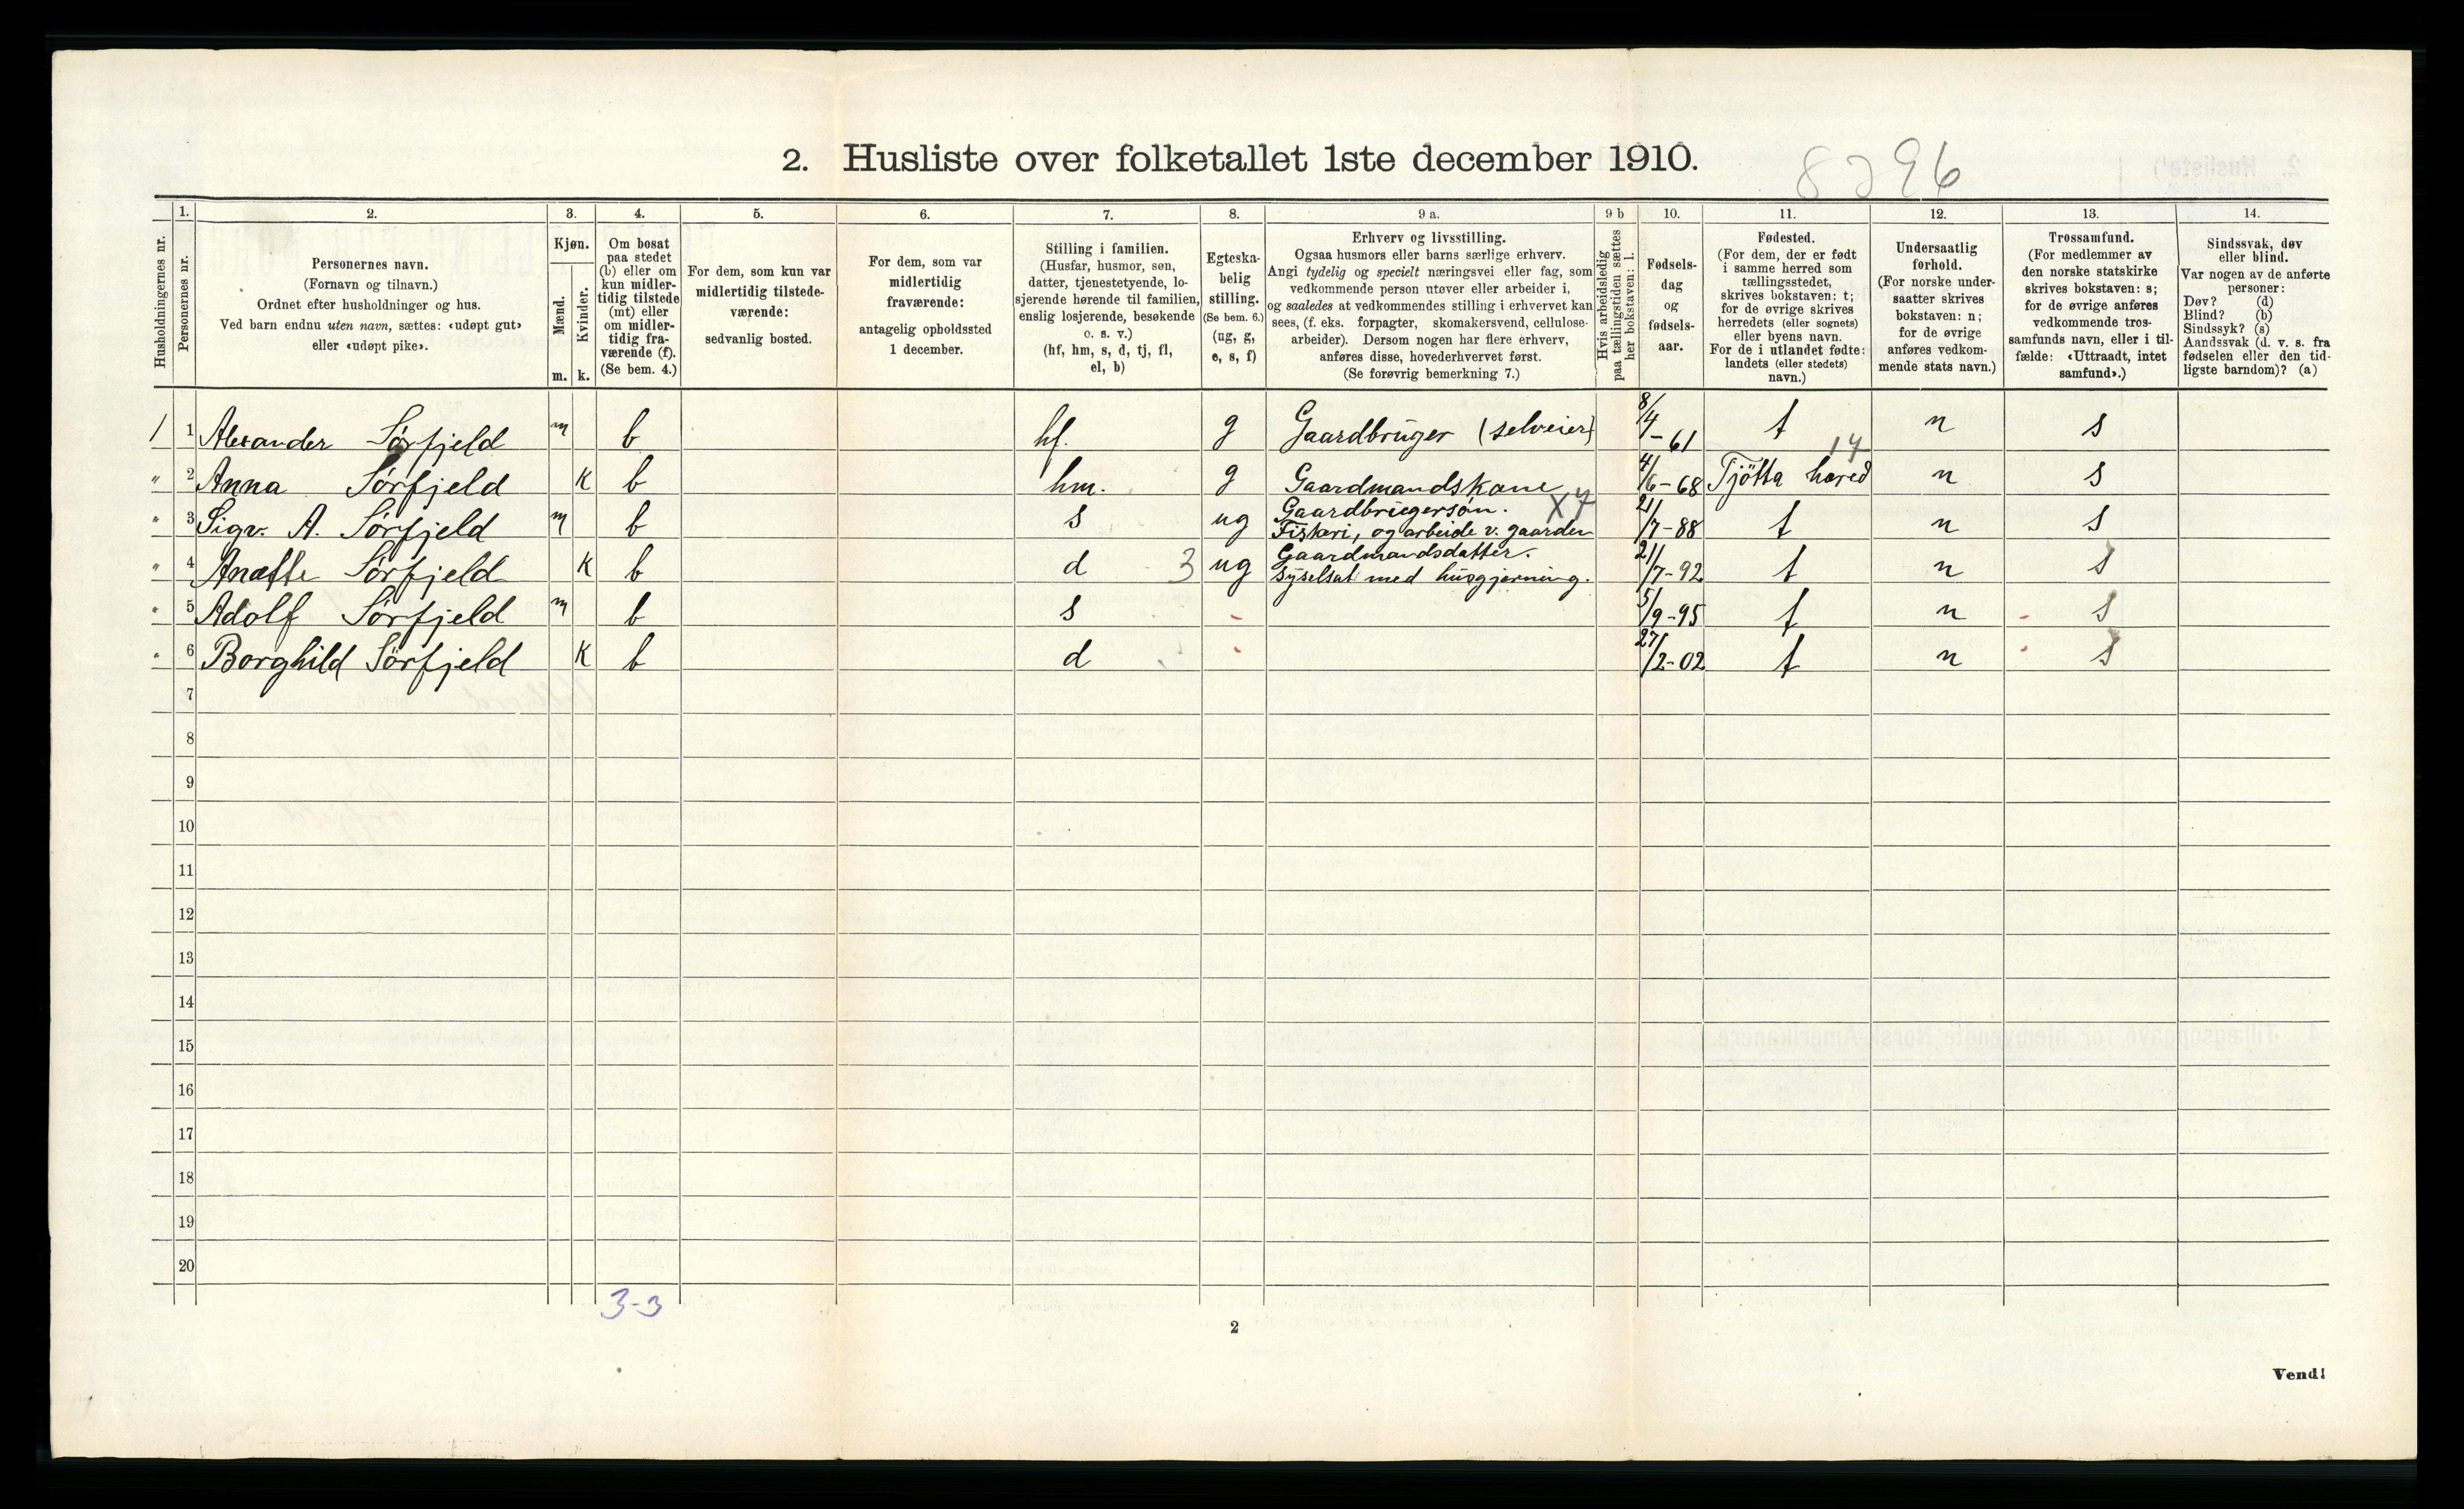 2. Husliste over folketallet 1ste december 1910.
8296
Husholdningernes nr.
1.
Personernes nr.
2.
Personernes navn.
(Fornavn og tilnavn.)
Ordnet efter husholdninger og hus.
Ved barn endnu uten navn, sættes: «udøpt gut»
eller «udøpt pike».
3.
Kjøn.
Mænd.
Kvinder.
m. k.
4.
Om bosat
paa stedet
(b) eller om
kun midler-
tidig tilstede
(mt) eller
om midler-
tidig fra-
værende (f).
(Se bem. 4.)
5.
For dem, som kun var
midlertidig tilstede-
værende:
sedvanlig bosted.
6.
For dem, som var
midlertidig
fraværende:
antagelig opholdssted
1 december.
7.
Stilling i familien.
(Husfar, husmor, søn,
datter, tjenestetyende, lo-
sjerende hørende til familien,
enslig losjerende, besøkende
o. s. v.)
(hf, hm, s, d, tj, fl,
el, b)
8.
Egteska-
belig
stilling.
(Se bem. 6.)
(ug, g,
e, s, f)
9 a.
Erhverv og livsstilling.
Ogsaa husmors eller barns særlige erhverv.
Angi tydelig og specielt næringsvei eller fag, som
vedkommende person utøver eller arbeider i,
og saaledes at vedkommendes stilling i erhvervet kan
sees, (f. eks. forpagter, skomakersvend, cellulose-
arbeider). Dersom nogen har flere erhverv,
anføres disse, hovederhvervet først.
(Se forøvrig bemerkning 7.)
9 b
Hvis arbeidsledig
paa tællingstiden sættes
her bokstaven: l.
10.
Fødsels-
dag
og
fødsels-
aar.
11.
Fødested.
(For dem, der er født
i samme herred som
tællingsstedet,
skrives bokstaven: t;
for de øvrige skrives
herredets (eller sognets)
eller byens navn.
For de i utlandet fødte:
landets (eller stedets)
navn.)
12.
Undersaatlig
forhold.
(For norske under-
saatter skrives
bokstaven: n;
for de øvrige
anføres vedkom-
mende stats navn.)
13.
Trossamfund.
(For medlemmer av
den norske statskirke
skrives bokstaven: s;
for de øvrige anføres
vedkommende tros-
samfunds navn, eller i til-
fælde: «Uttraadt, intet
samfund».)
14.
Sindssvak, døv
eller blind.
Var nogen av de anførte
personer:
Døv? (d)
Blind? (b)
Sindssyk? (s)
Aandssvak (d. v. s. fra
fødselen eller den tid-
ligste barndom)? (a)
1 1 Alexander Sørfjeld m b hf. g Gaardbruger (selveier) 8/4-61 t n s
14
" 2 Anna Sørfjeld K b hm. g Gaardmandskone 4/6-68 Tjötta hered n s
" 3 Sigv. A. Sørfjeld m b s ug Gaardbrugersøn. X7
Fiskeri, og arbeide v. gaarden 21/7-88 t n s
" 4 Anette Sørfjeld K b d 3 ug Gaardmandsdatter.
syselsat med husgjerning. 21/7-92 t n s
" 5 Adolf Sørfjeld m b s - 5/9-95 t n - s
" 6 Borghild Sørfjeld K b d - 27/2-02 t n - s
7
8
9
10
11
12
13
14
15
16
17
18
19
20
3-3
2
Vend!